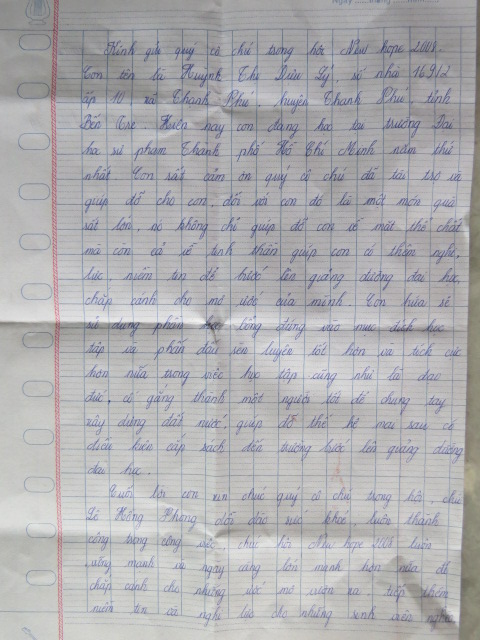 Kính gửi quý cô chú trong hội New hope 2008.
Con tên là Huỳnh Thị Diệu Lý, số nhà 169/2
ấp 10, xã Thạnh Phú, huyện Thạnh Phú, tỉnh
Bến Tre. Hiện nay con đang học tại trường Đại
học sư phạm Thành phố Hồ Chí Minh năm thứ
nhất. Con rất cảm ơn quý cô chú đã tài trợ và
giúp đỡ cho con, đối với con đó là một món quà
rất lớn, nó không chỉ giúp đỡ con về mặt thể chất
mà còn cả về tinh thần giúp con có thêm nghị
lực niềm tin để bước lên giảng đường đại học,
chấp cánh cho mơ ước của mình. Con hứa sẽ
sử dụng phần học bổng đúng vào mục đích học
tập và phấn đấu rèn luyện tốt hơn và tích cực
hơn nữa trong việc học tập cũng như là đạo
đức, cố gắng thành một người tốt để chung tay
xây dựng đất nước, giúp đỡ thế hệ mai sau có
điều kiện cấp sách đến trường bước lên giảng đường
đại học.
Cuối lời con xin chúc quý cô chú trong hội, chú
Lê Hồng Phong dồi dào sức khỏe, luôn thành
công trong công việc, chúc hội New hope 2008 luôn
vững mạnh và ngày càng lớn mạnh hơn nữa để
chấp cánh cho những ước mơ vươn xa, tiếp thêm
niềm tin và nghị lực cho những sinh viên nghèo